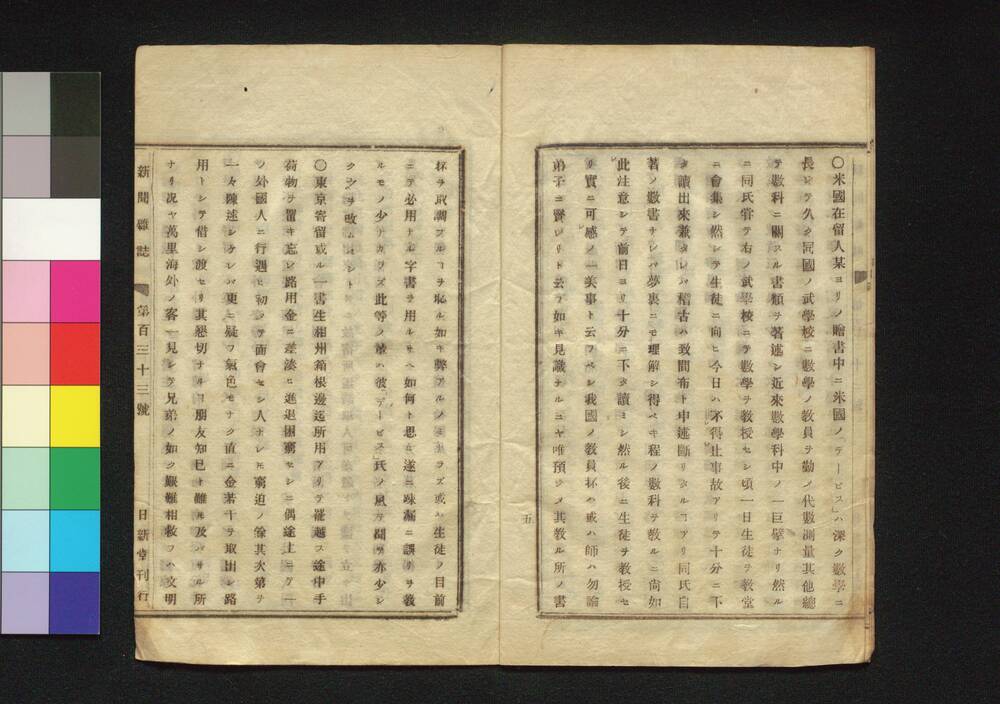 〇米國在留人某ヨリノ贈書中ニ米國ノ「デービス」ハ深ク數學ニ
長シテ久シク同國ノ武學校ニ數學ノ教員ヲ勤メ代數測量其他總
テ數科ニ關スル書類ヲ著述シ近來數學科中ノ一巨擘ナリ然ル
ニ同氏嘗テ右ノ武學校ニテ數學ヲ教授セシ頃一日生徒ヲ教堂
ニ會集シ然シテ生徒ニ向ヒ今日ハ不得止事故アリテ十分ニ下
タ讀出來兼タレバ稽古ハ致間布ト申述斷リタルコアリ同氏自
著ノ數書ナレバ夢裏ニモ理解シ得ベキ程ノ數科ヲ教ルニ尚如
此注意シテ前日ヨリ十分ニ下タ讀ミシ然ル後ニ生徒ヲ教授セ
リ實ニ可感ノ一美事ト云フベシ我國ノ教員杯ハ或ハ師ハ勿論
弟子ニ賢レリト云ヲ如キ見識ナルユヱ唯預ジメ其教ル所ノ書
五
杯ヲ取調フルコヲ恥ル如キ弊アルノミナラズ或ハ生徒ノ目前
ニテ必用ナル字書ヲ用ルサヘ如何ト思ヒ遂ニ疎漏ニ誤リヲ教
ルモノ少ナカラズ此等ノ輩ハ彼「デービス」氏ノ風ヲ聞ヲ亦少シ
〇東京寄留或ル一書生相州箱根邊迄所用アリテ罷越ス途中手
荷物ヲ置キ忘レ路用金ニ差湊ヒ進退困窮セシニ偶途上ニテ一
ノ外國人ニ行遇ヒ初メテ面會セシ人ナレモ窮迫ノ餘其次第ヲ
一々陳述シケレバ更ニ疑フ氣色モナク直ニ金若干ヲ取出シ路
用トシテ借シ渡セリ其懇切ナルヿ朋友知巳ト雖ル及バサル所
ナリ况ヤ萬里海外ノ客一見シテ兄弟ノ如ク艱難相救フハ文明
新聞雜誌　第百三十三號　日新堂刊行